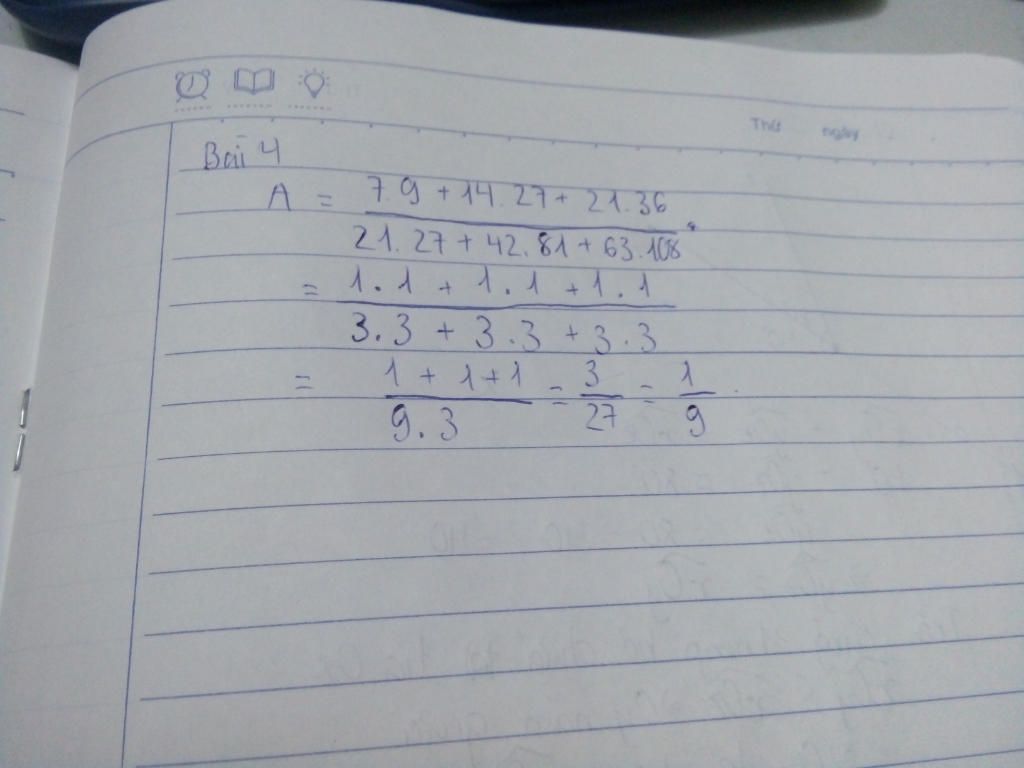 Thứ ngày
Bài 4
A = 7.9 + 14.27 + 21.36
21.27 + 42.81 + 63.108
= 1.1 + 1.1 + 1.1
3.3 + 3.3 + 3.3
= 1 + 1 + 1 = 3 = 1
9.3 27 9